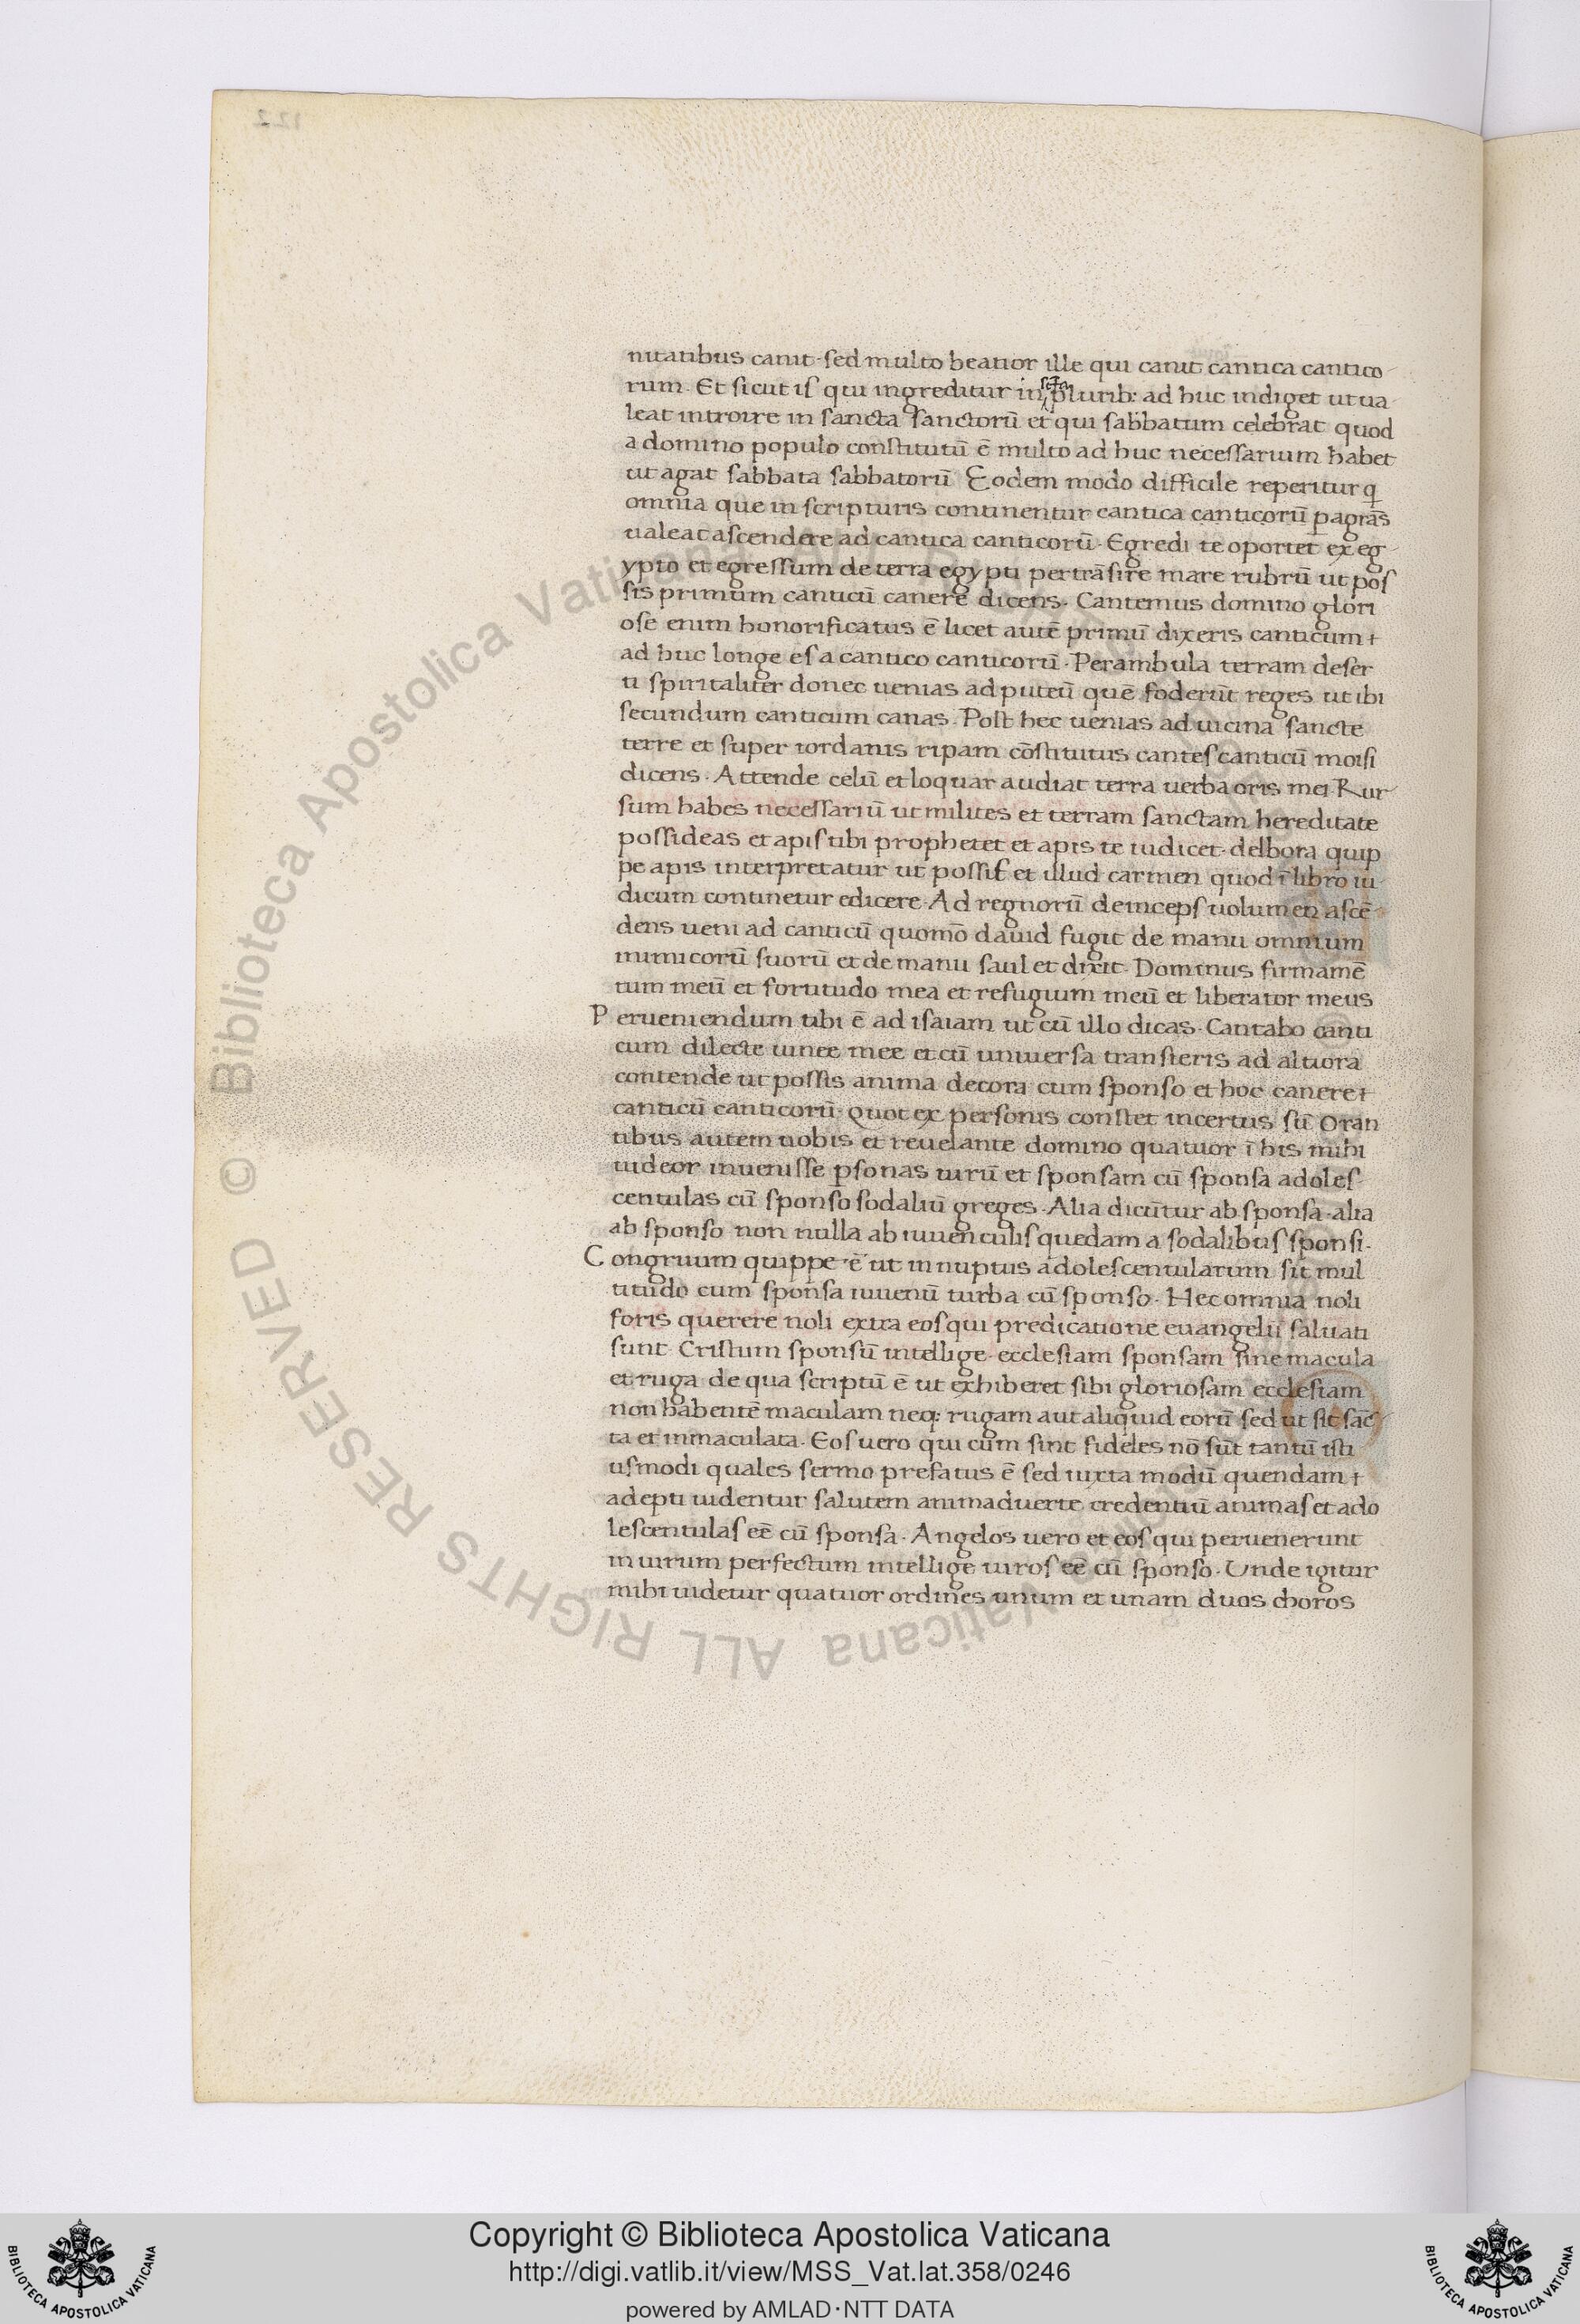 122
nitatibus canit · sed multo beatior ille qui canit cantica cantico-
rum · Et sicut is qui ingreditur in scta plurib: ad huc indiget ut ua-
leat introire in sancta sanctorū et qui sabbatum celebrat quod
a domino populo constitutū ē multo ad huc necessarium habet
ut agat sabbata sabbatorū Eodem modo difficile reperitur q
omnia que in scripturis continentur cantica canticorū pagrās
ualeat ascendere ad cantica canticorū · Egredi te oportet ex eg-
ypto et egressum de terra egypti pertrāsire mare rubrū ut pos
sis primum canticū canere dicens · Cantemus domino glori
ose enim honorificatus ē licet autē primū dixeris canticum
ad huc longe es a cantico canticorū · Perambula terram deser
ti spiritaliter donec uenias ad puteū quē foderūt reges ut ibi
secundum canticum canas · Post hec uenias ad uicina sancte
terre et super iordanis ripam cōstitutus cantes canticū moisi
dicens · Attende celū et loquar audiat terra uerba oris mei Rur-
sum habes necessariū ut milites et terram sanctam hereditate
possideas et apis tibi prophetet et apis te iudicet · delbora quip
pe apis interpretatur ut possis et illud carmen quod ī libro iu
dicum continetur edicere · Ad regnorū deinceps uolumen ascē-
dens ueni ad canticū quomō dauid fugit de manu omnium
inimicorū suorū et de manu saul et dixit · Dominus firmamē
tum meū et fortitudo mea et refugium meū et liberator meus
Perueniendum tibi ē ad isaiam ut cū illo dicas · Cantabo canti
cum dilecte uinee mee et cū uniuersa transieris ad altiora
contende ut possis anima decora cum sponso et hoc canere
canticū canticorū · Quot ex personis constet incertus sū Oran
tibus autem uobis et reuelante domino quatuor ī his mihi
uideor inuenisse psonas uirū et sponsam cū sponsa adoles-
centulas cū sponso sodaliū greges · Alia dicūtur ab sponsa · alia
ab sponso non nulla ab iuuenculis quedam a sodalibus sponsi ·
Congruum quippe ē ut in nuptiis adolescentularum sit mul
titudo cum sponsa iuuenū turba cū sponso · Hec omnia noli
foris querere noli extra eos qui predicatione euangelii saluati
sunt · Cristum sponsū intellige · ecclesiam sponsam sine macula
et ruga de qua scriptū ē ut exhiberet sibi gloriosam ecclesiam
non habentē maculam neq: rugam aut aliquid eorū sed ut sit sāc-
ta et inmaculata · Eos uero qui cum sint fideles nō sūt tantū isti
usmodi quales sermo prefatus ē sed iuxta modū quendam
adepti uidentur salutem animaduerte credentiū animas et ado
lescentulas eē cū sponsa · Angelos uero et eos qui peruenerunt
in uirum perfectum intellige uiros eē cū sponso · Unde igitur
mihi uidetur quatuor ordines unum et unam duos choros
© Biblioteca Apostolica Vaticana ALL RIGHTS RESERVED
Copyright © Biblioteca Apostolica Vaticana
http://digi.vatlib.it/view/MSS_Vat.lat.358/0246
powered by AMLAD·NTT DATA
BIBLIOTECA APOSTOLICA VATICANA
BIBLIOTECA APOSTOLICA VATICANA